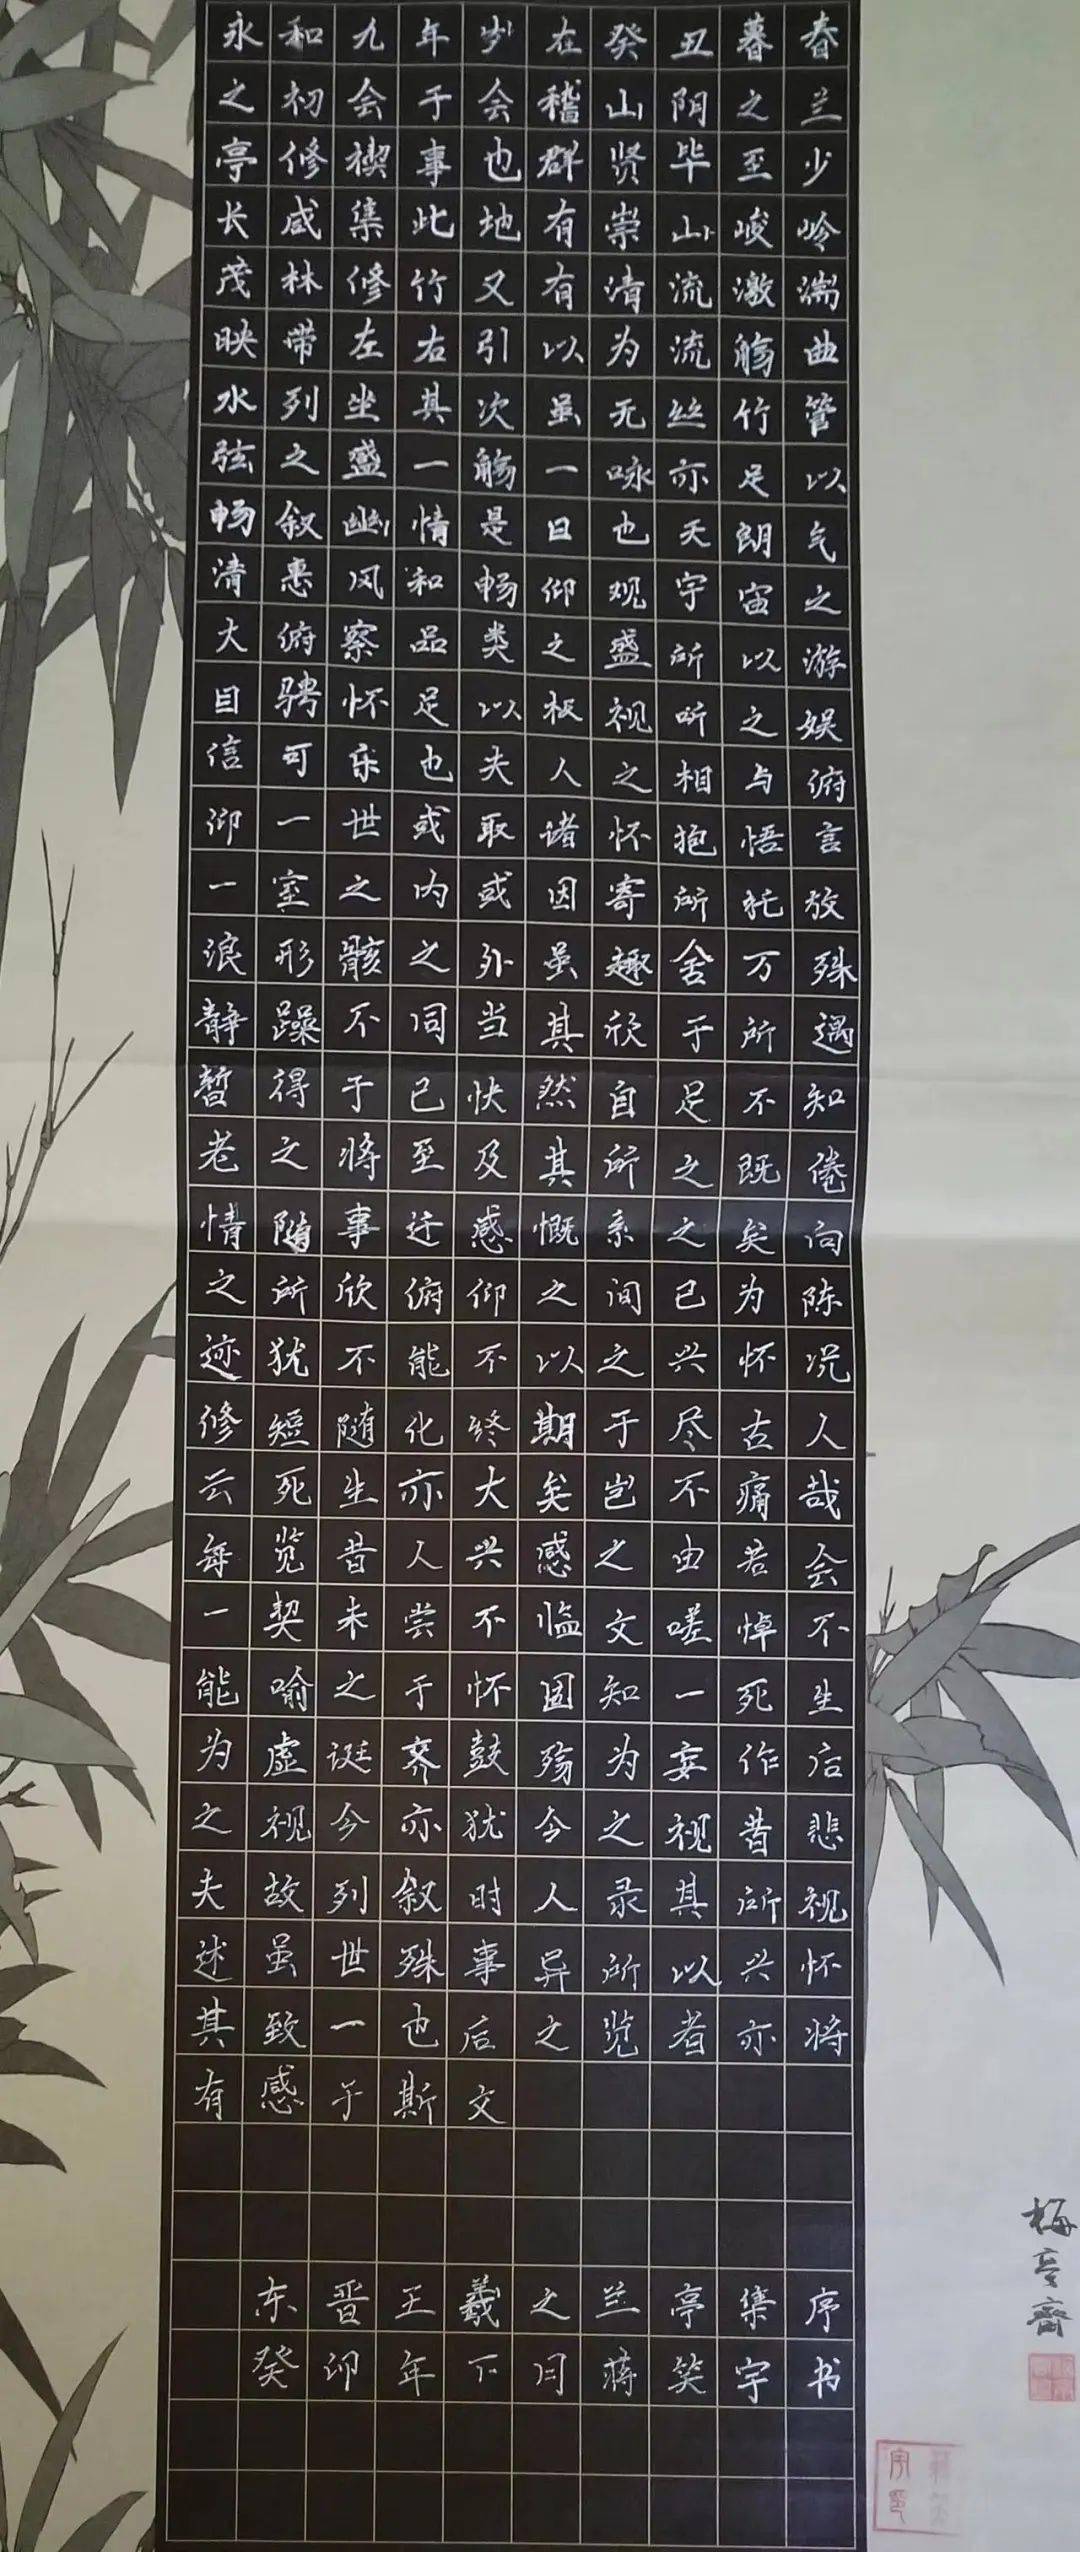 永和九年岁在癸丑暮春
之初会于会稽山阴之兰
亭修禊事也群贤毕至少
长咸集此地有崇山峻岭
茂林修竹又有清流激湍
映带左右引以为流觞曲
水列坐其次虽无丝竹管
弦之盛一觞一咏亦足以
畅叙幽情是日也天朗气
清惠风和畅仰观宇宙之
大俯察品类之盛所以游
目骋怀足以极视听之娱
信可乐也夫人之相与俯
仰一世或取诸怀抱悟言
一室之内或因寄所托放
浪形骸之外虽趣舍万殊
静躁不同当其欣于所遇
暂得于己快然自足不知
老之将至及其所之既倦
情随事迁感慨系之矣向
之所欣俯仰之间已为陈
迹犹不能不以之兴怀况
修短随化终期于尽古人
云死生亦大矣岂不痛哉
每览昔人兴感之由若会
一契未尝不临文嗟悼不
能喻之于怀固知一死生
为虚诞齐鼓殇为妄作后
之视今亦犹今之视昔悲
夫故列叙时人录其所视
述虽世殊事异所以兴怀
其致一也后之览者亦将
有感于斯文
东晋王羲之兰亭集序
癸卯年下月蒋笑宇书
梅亭斋